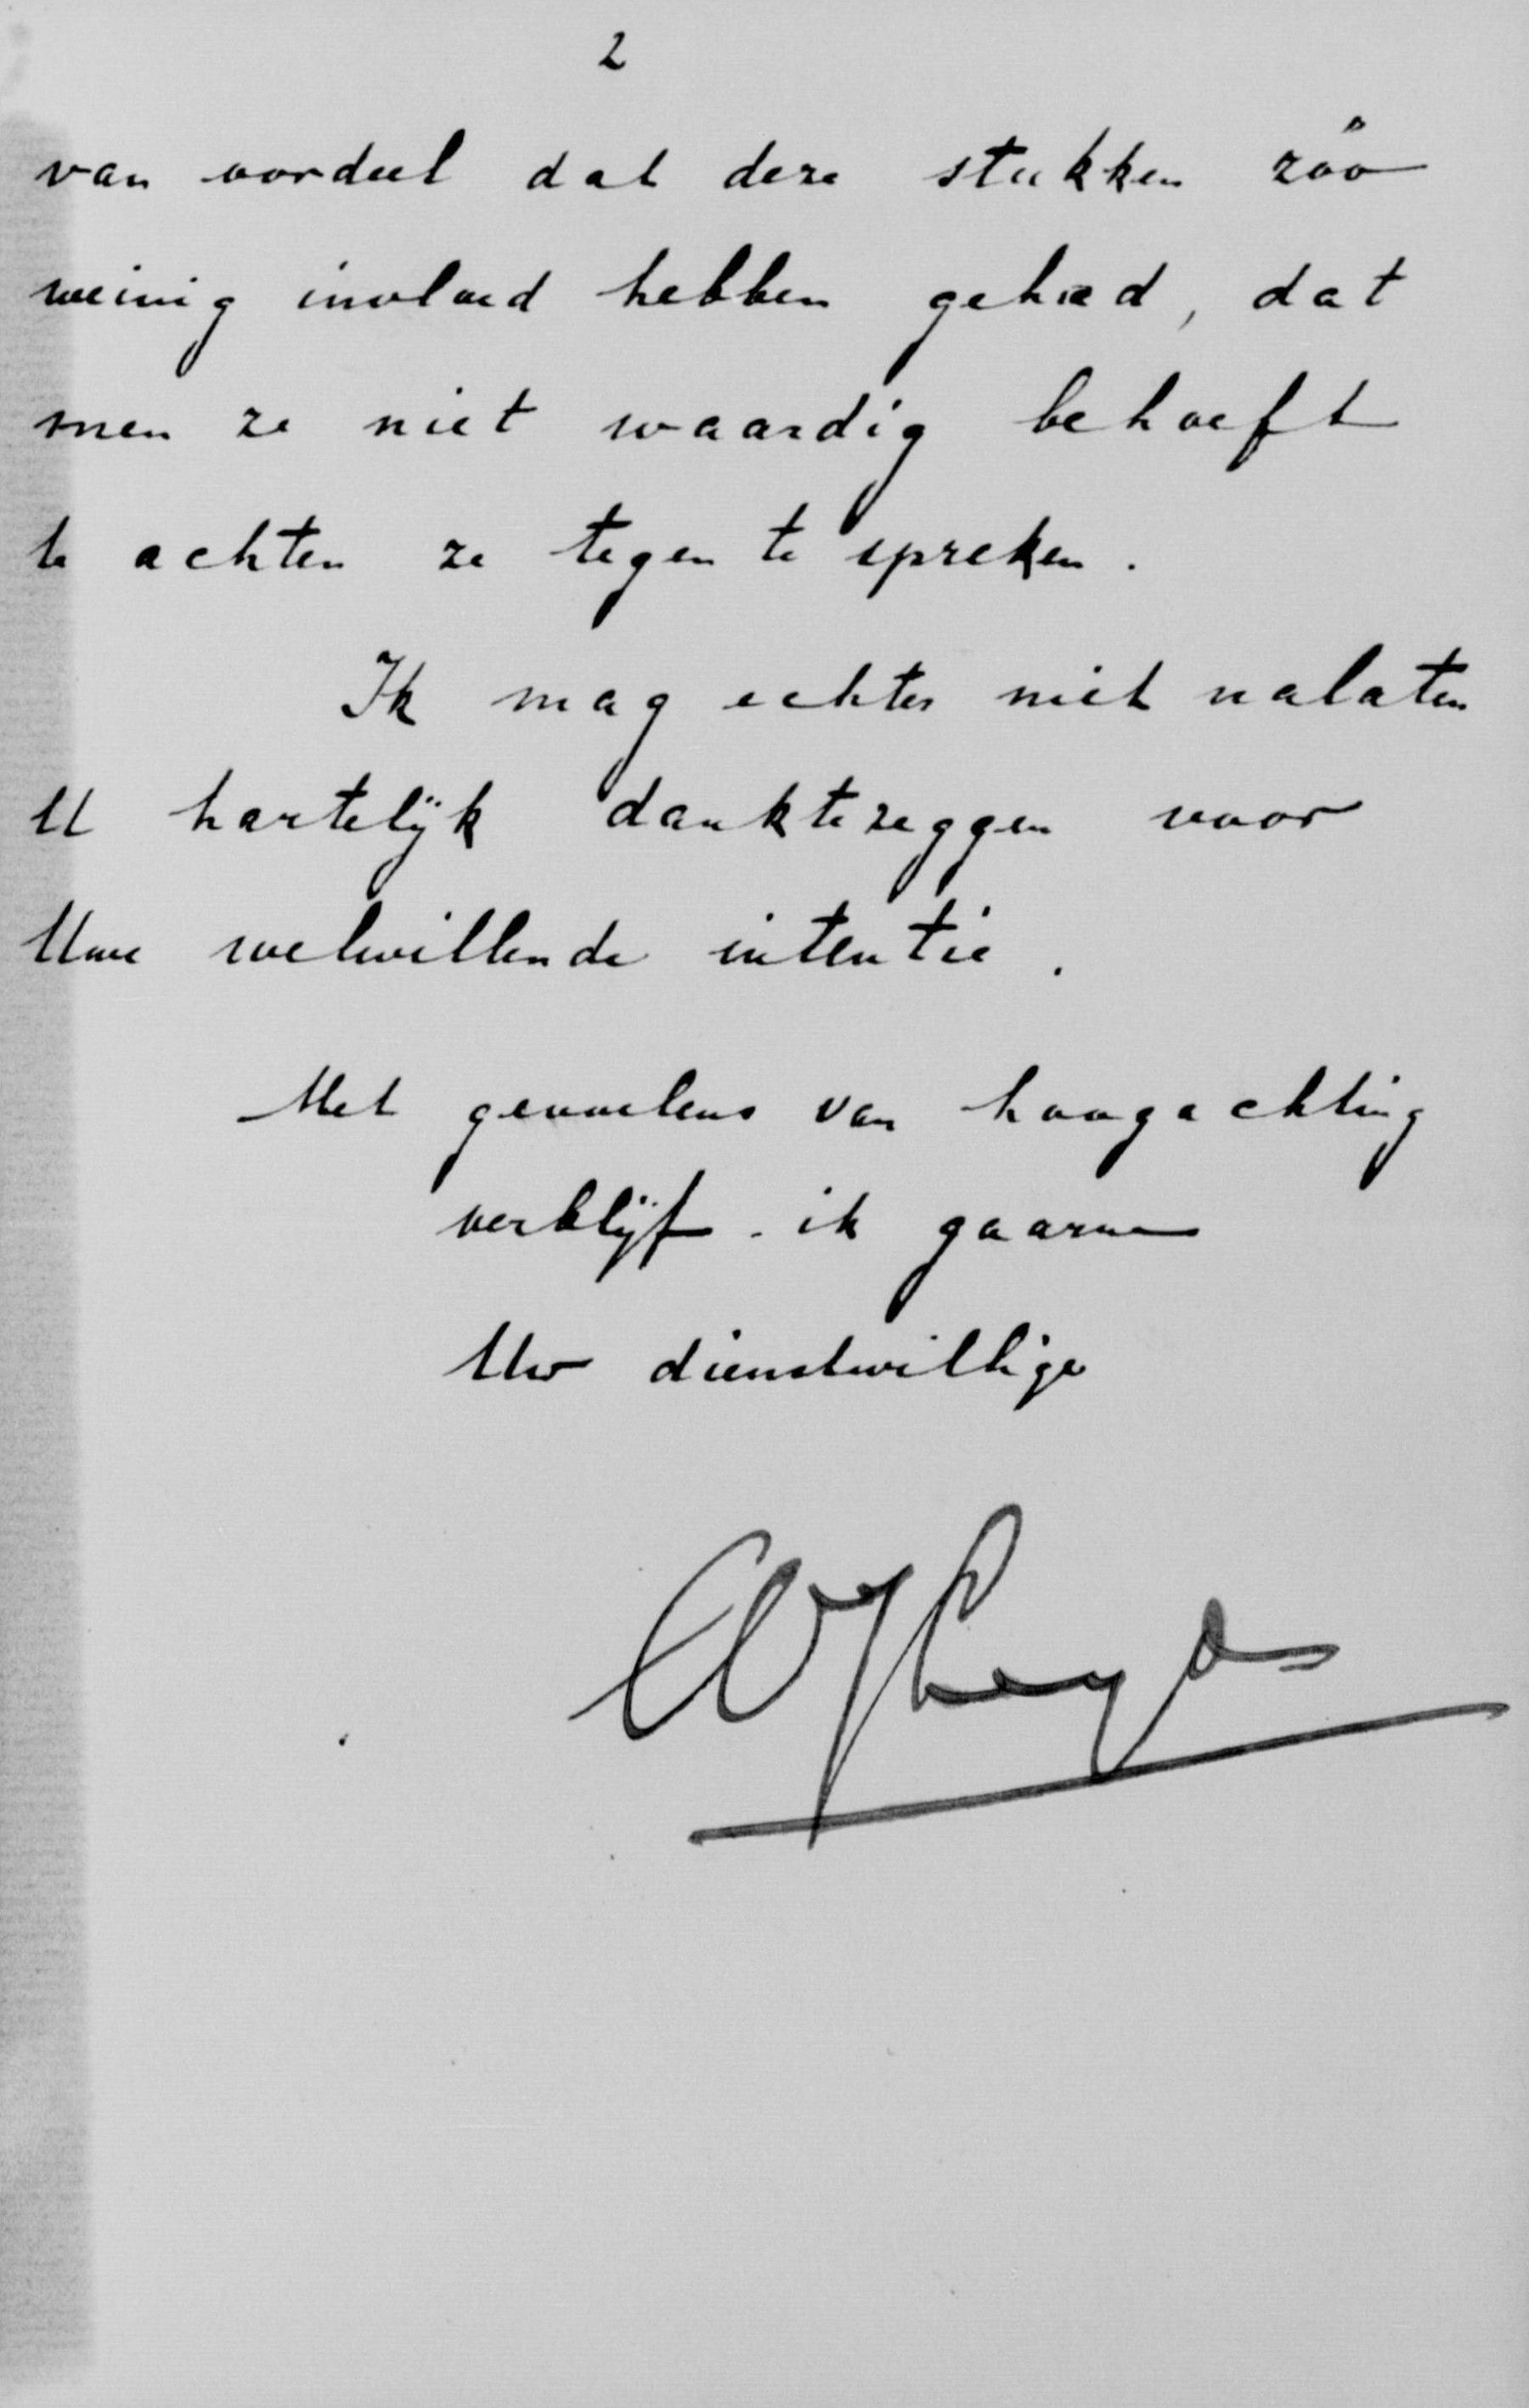 2
van oordeel dat deze stukken zóó
weinig invloed hebben gehad, dat
men ze niet waardig behoeft
te achten ze tegen te spreken.
Ik mag echter niet nalaten
U hartelijk dank te zeggen voor
Uwe welwillende intentie.
Met gevoelens van hoogachting
verblijf ik gaarne
Uw dienstwillige